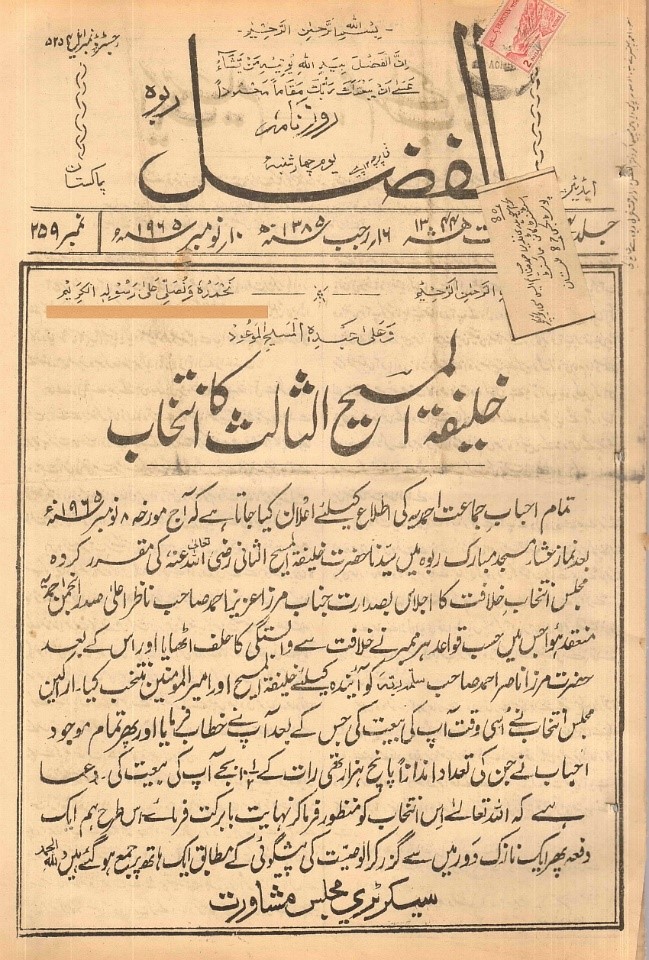 رجسٹرڈ نمبر ایل ۵۲۵۴
بسم اللہ الرحمٰن الرحیم
ان الفضل بید اللہ یؤتیہ من یشاء
عسیٰ ان یبعثک ربک مقاماً محموداً
ربوہ
روزنامہ
یوم چہار شنبہ
الفضل
پاکستان
ایڈیٹر
جلد
۱۳۴۴ ہش ۱۶ رجب ۱۳۸۵ھ ۱۰ نومبر ۱۹۶۵ء
نمبر ۲۵۹
الرحمٰن الرحیم
نحمدہ ونصلی علیٰ رسولہ الکریم
وعلیٰ عبدہ المسیح الموعود
خلیفۃ المسیح الثالث کا انتخاب
تمام احباب جماعت احمدیہ کی اطلاع کیلئے اعلان کیا جاتا ہے کہ آج مورخہ ۸ نومبر ۱۹۶۵ء
بعد نماز عشاء مسجد مبارک ربوہ میں سیدنا حضرت خلیفۃ المسیح الثانی رضی اللہ تعالیٰ عنہ کی مقرر کردہ
مجلس انتخاب خلافت کا اجلاس بصدارت جناب مرزا عزیز احمد صاحب ناظر اعلیٰ صدر انجمن احمدیہ
منعقد ہوا جس میں حسب قواعد ہر ممبر نے خلافت سے وابستگی کا حلف اٹھایا اور اس کے بعد
حضرت مرزا ناصر احمد صاحب سلمہ ربہ کو آئندہ کیلئے خلیفۃ المسیح اور امیر المومنین منتخب کیا۔ اراکین
مجلس انتخاب نے اُسی وقت آپ کی بیعت کی جس کے بعد آپ نے خطاب فرمایا اور پھر تمام موجود
احباب نے جن کی تعداد اندازاً پانچ ہزار تھی رات کے ۱۰½ بجے آپ کی بیعت کی۔ دعا
ہے کہ اللہ تعالیٰ اس انتخاب کو منظور فرما کر نہایت بابرکت فرمائے اس طرح ہم ایک
دفعہ پھر ایک نازک دور میں سے گزر کر الوصیت کی پیشگوئی کے مطابق ایک ہاتھ پر جمع ہو گئے ہیں وللہ الحمد
سیکرٹری مجلس مشاورت